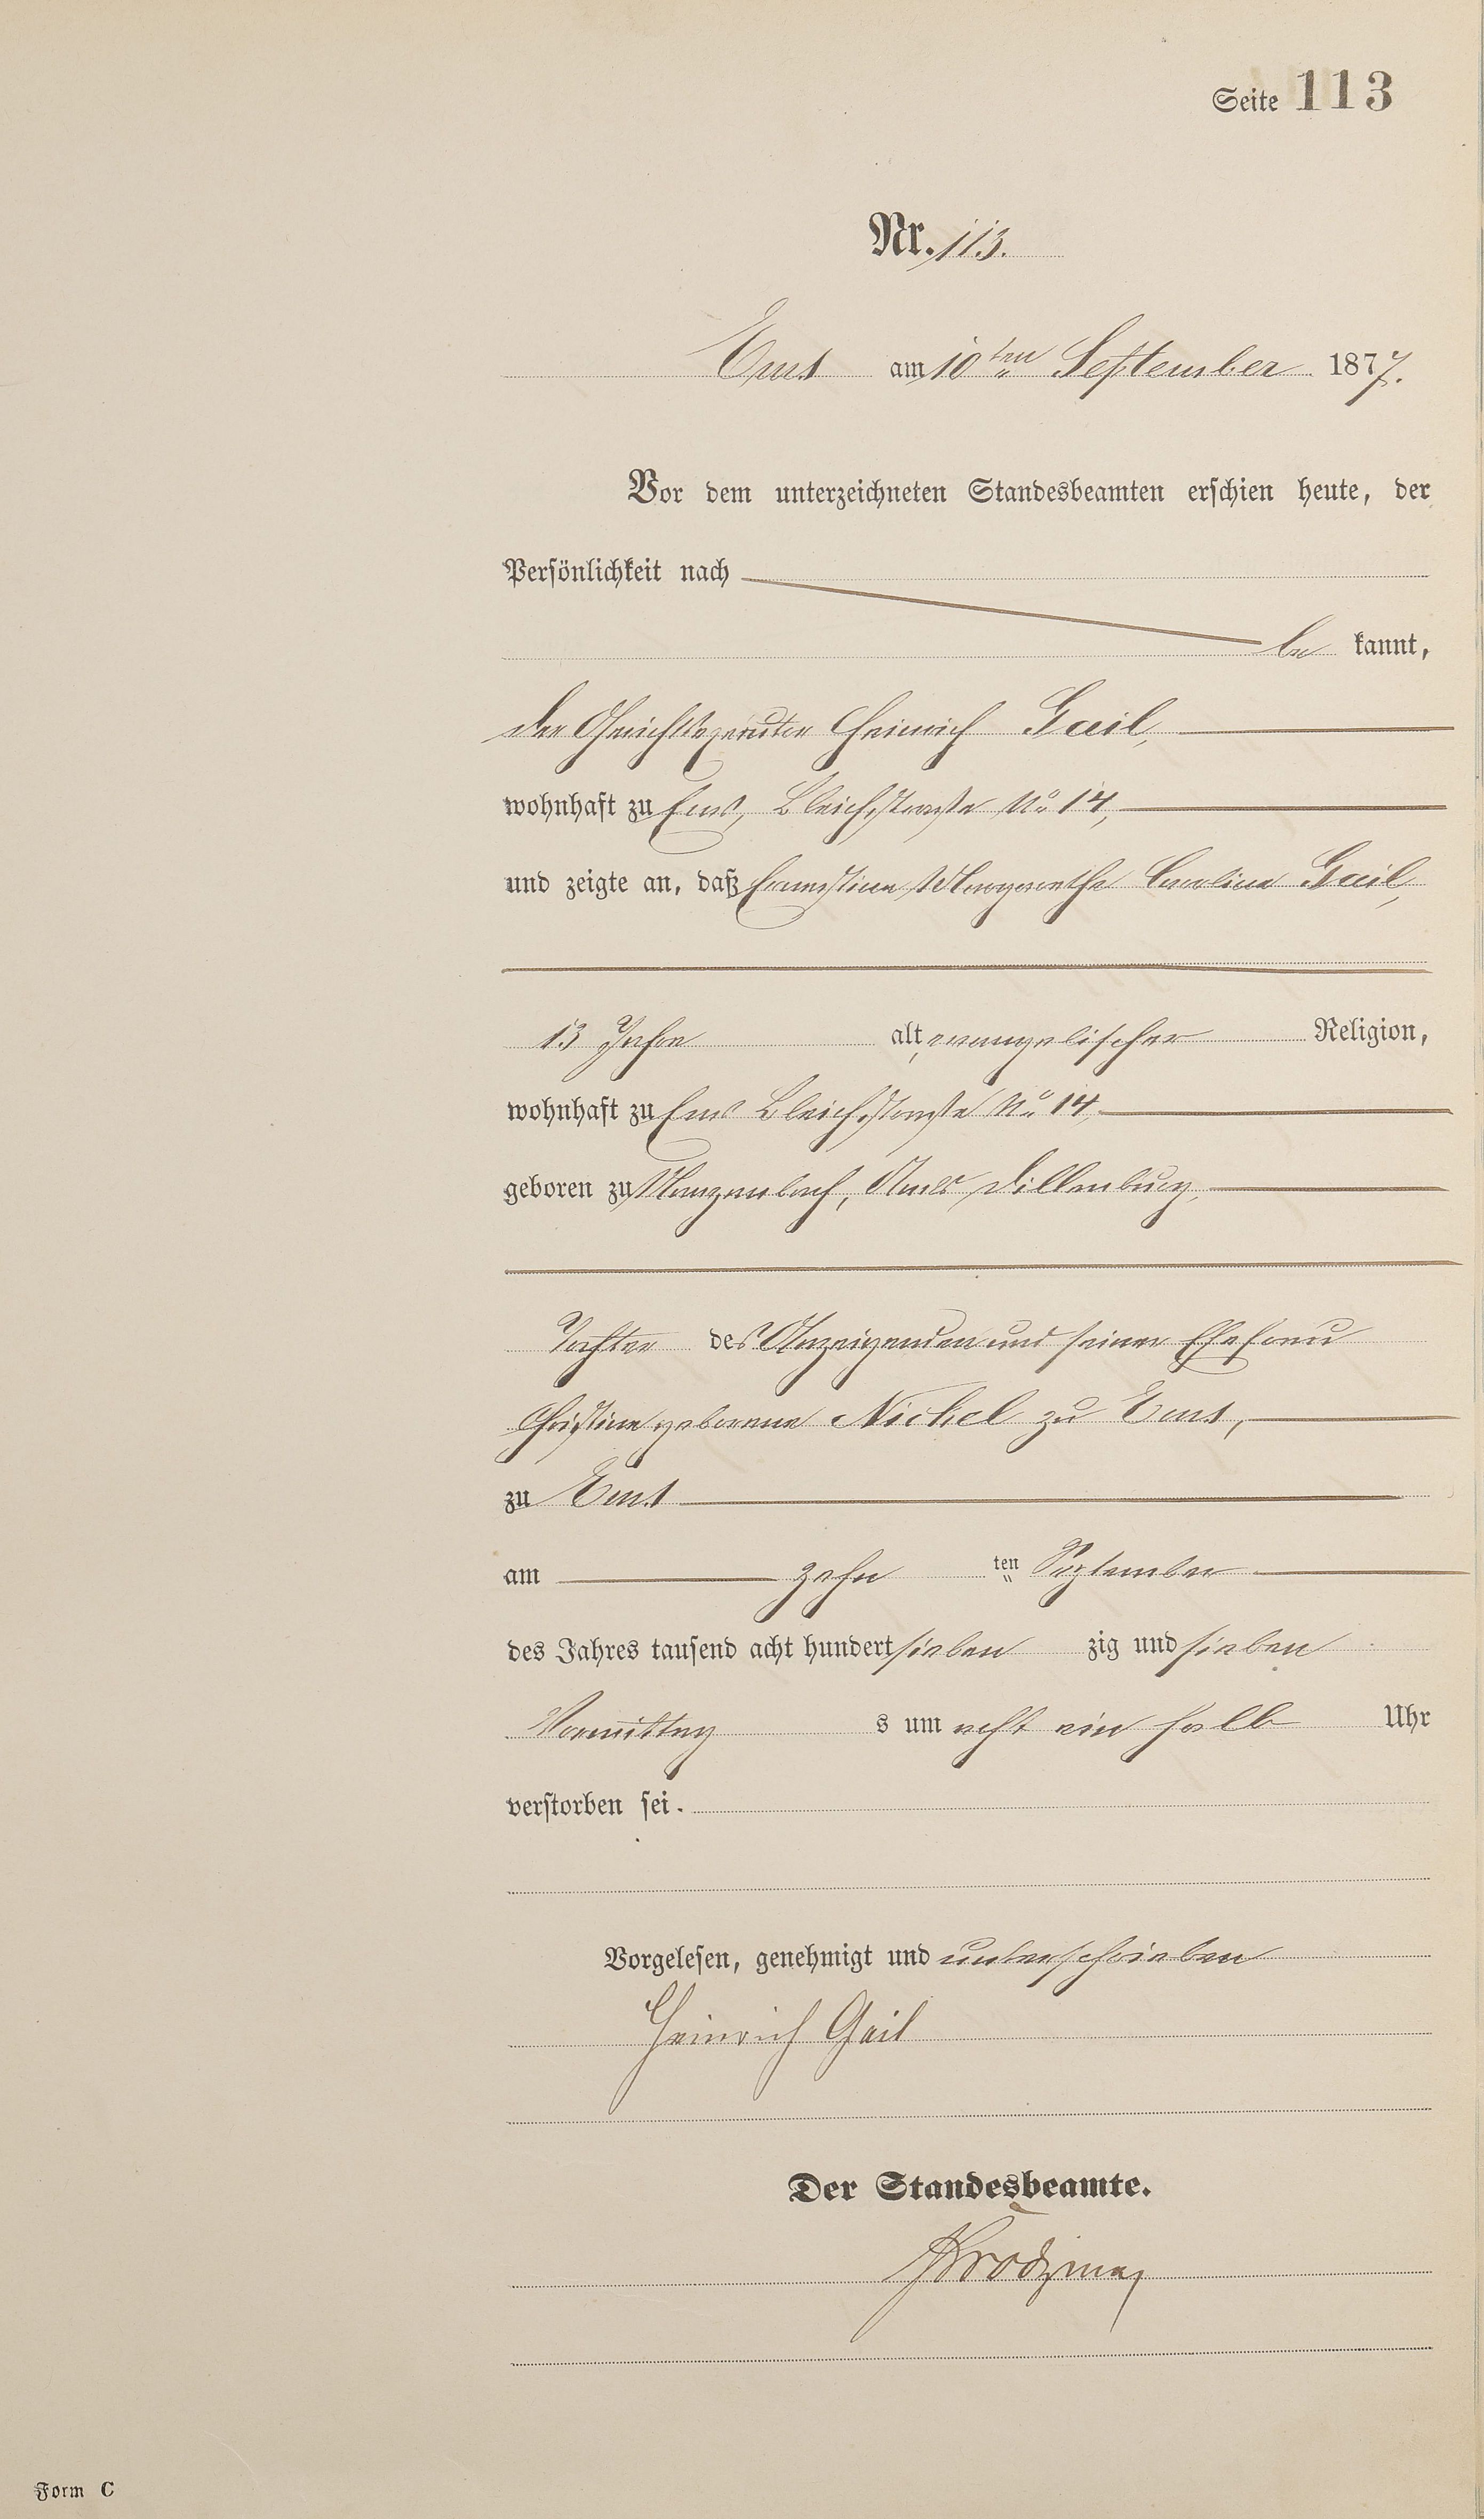 Seite 113
Nr. 113.
Ems am 10ten September 1877.
Vor dem unterzeichneten Standesbeamten erschien heute, der
Persönlichkeit nach
be kannt,
der Gerichtsexecutor Heinrich Gail,
wohnhaft zu Ems, Bleichstraße No 14,
und zeigte an, daß Ernestine Margarethe Caroline Gail,
13 Jahre alt, evangelischer Religion,
wohnhaft zu Ems Bleichstraße No 14,
geboren zu Manzenbach, Amts Dillenburg,
Tochter des Anzeigenden und seiner Ehefrau
Christine geborene Nickel zu Ems,
zu Ems
am zehn ten September
des Jahres tausend acht hundert sieben zig und sieben
Vormittag s um acht ein halb Uhr
verstorben sei.
Vorgelesen, genehmigt und unterschrieben
Heinrich Gail
Der Standesbeamte.
Form C